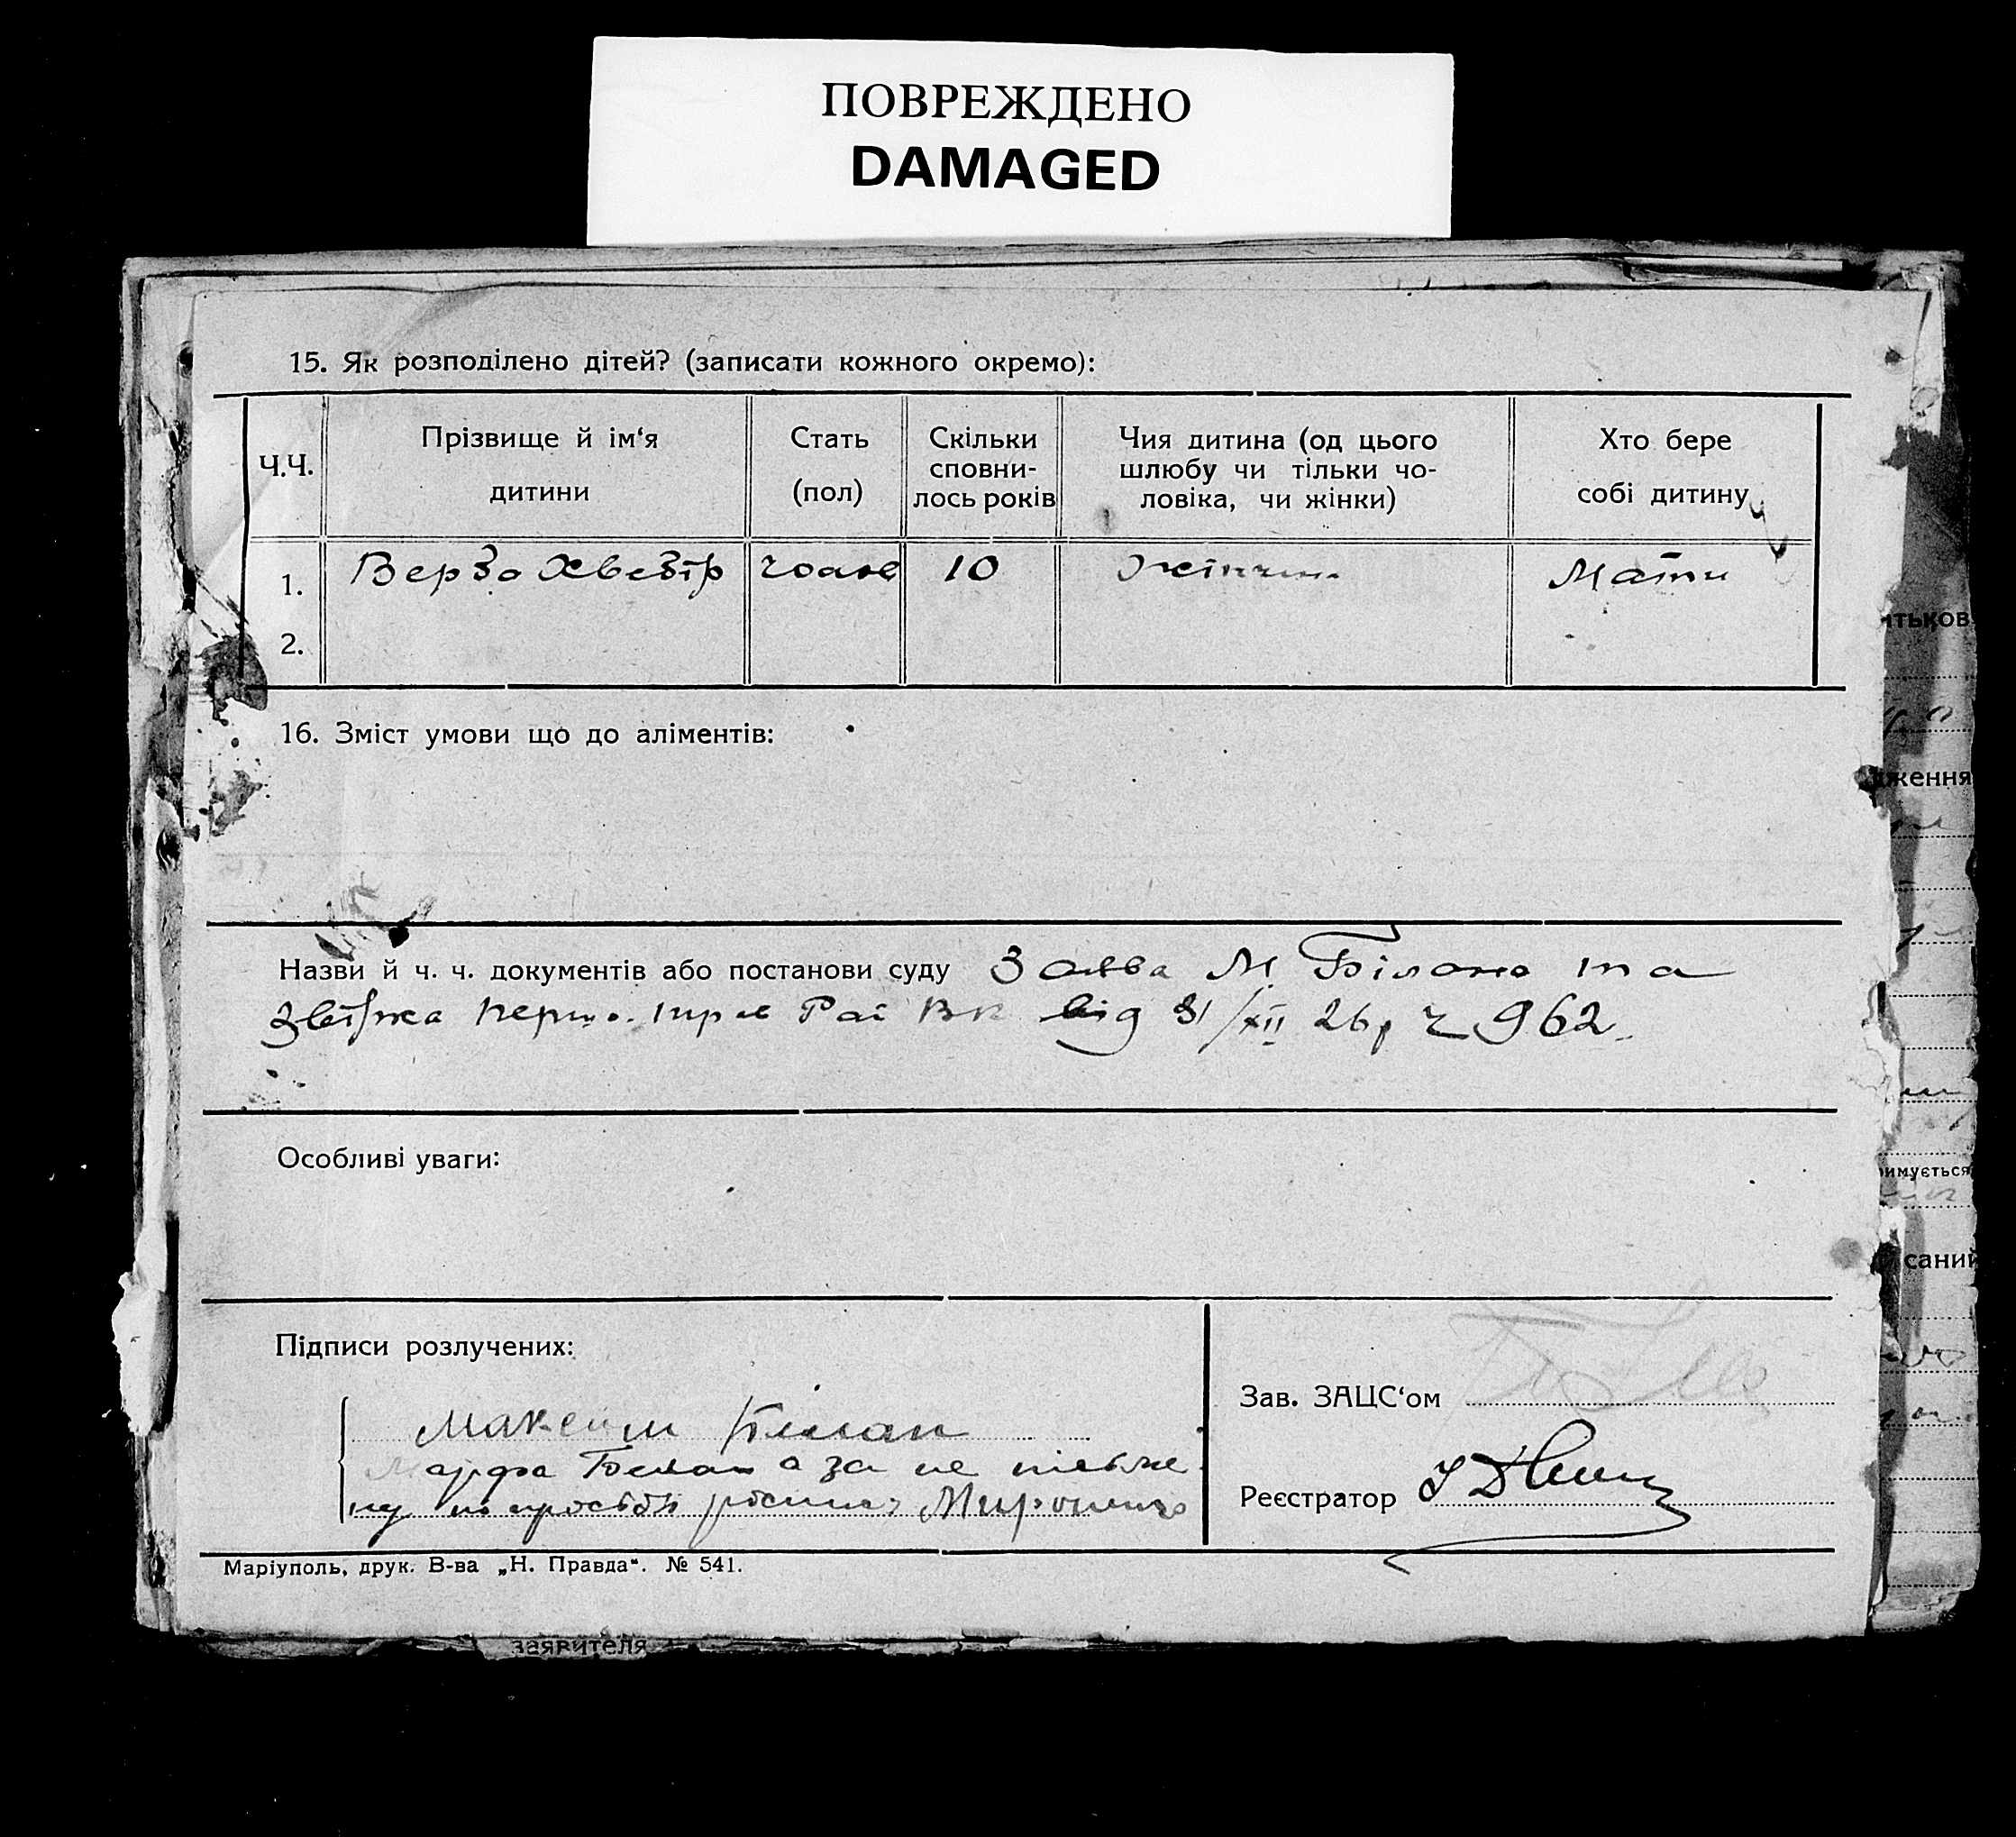 ПОВРЕЖДЕНО
DAMAGED
15. Як розподілено дітей? (записати кожного окремо):
Ч.Ч.
Прізвище й ім‘я
дитини
Стать
(пол)
Скільки
сповни-
лось років
Чия дитина (од цього
шлюбу чи тільки чо-
ловіка, чи жінки)
Хто бере
собі дитину
1. 10 Мати
2.
16. Зміст умови що до аліментів:
Назви й ч. ч. документів або постанови суду Заява М Білана та
від 31/XII 26р ч 962
Особливі уваги:
Підписи розлучених:
Максим Білан
Марфа Белан а за не
по просьбі
Зав. ЗАЦС‘ом
Реєстратор
Маріуполь, друк. В-ва „Н. Правда“. № 541.
заявителя
тьков
дження
имується
саний